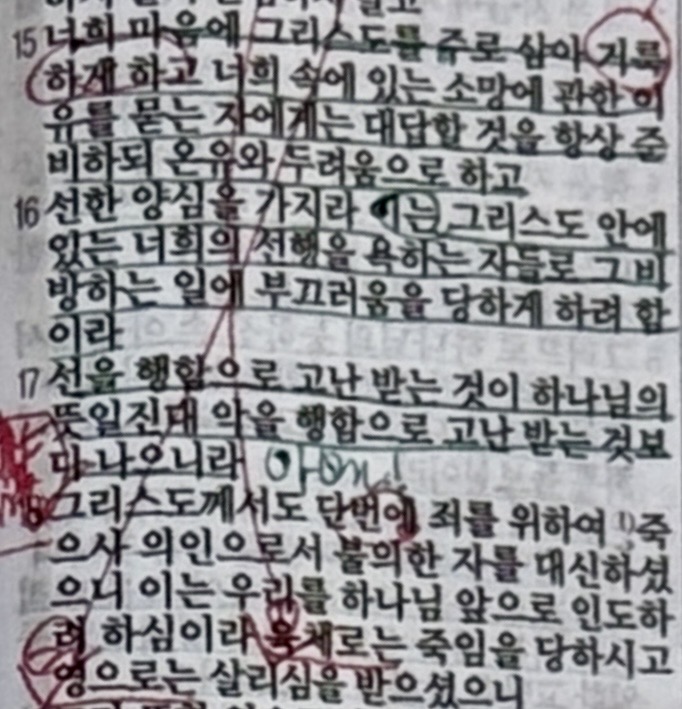 15 너희 마음에 그리스도를 주로 삼아 거룩
하게 하고 너희 속에 있는 소망에 관한 이
유를 묻는 자에게는 대답할 것을 항상 준
비하되 온유와 두려움으로 하고
16 선한 양심을 가지라 이는 그리스도 안에
있는 너희의 선행을 욕하는 자들로 그 비
방하는 일에 부끄러움을 당하게 하려 함
이라
17 선을 행함으로 고난 받는 것이 하나님의
뜻일진대 악을 행함으로 고난 받는 것보
다 나으니라 아멘!
그리스도께서도 단번에 죄를 위하여 1)죽
으사 의인으로서 불의한 자를 대신하셨
으니 이는 우리를 하나님 앞으로 인도하
려 하심이라 육체로는 죽임을 당하시고
영으로는 살리심을 받으셨으니